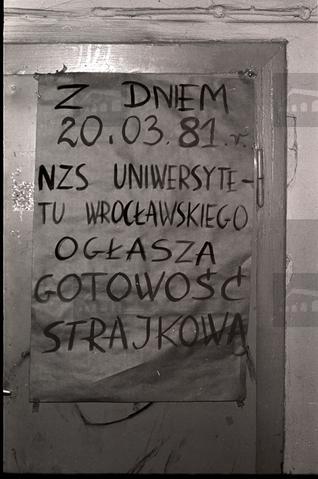 Z DNIEM
20.03.81.r.
NZS UNIWERSYTE-
TU WROCŁAWSKIEGO
OGŁASZA
GOTOWOŚĆ
STRAJKOWĄ